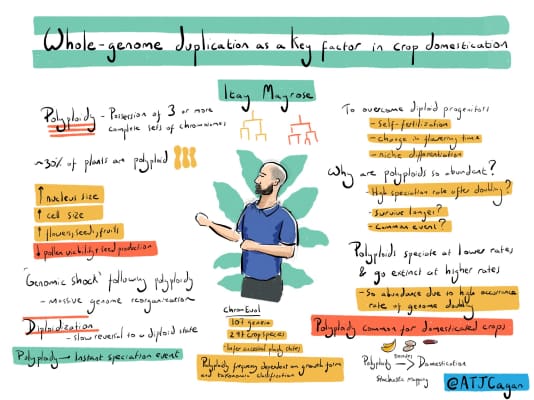 Whole-genome duplication as a key factor in crop domestication
Itay Mayrose
Polyploidy - Possession of 3 or more
complete sets of chromosomes
~30% of plants are polyploid
↑ nucleus size
↑ cell size
↑ flowers, seeds, fruits
↓ pollen viability & seed production
'Genomic shock' following polyploidy
- Massive genome reorganization
Diploidization
- slow reversal to a diploid state
Polyploidy → Instant speciation event
ChromEvol
107 genera
297 crop species
Infer ancestral ploidy states
Polyploidy frequency dependent on growth form
and taxonomic classification
To overcome diploid progenitors
- Self-fertilization
- change in flowering time
- niche differentiation
Why are polyploids so abundant?
High speciation rate after doubling?
Survive longer?
- Common event?
Polyploids speciate at lower rates
& go extinct at higher rates
- So abundance due to high occurrence
rate of genome doubling
Polyploidy common for domesticated crops
Polyploidy → Domestication
Stochastic mapping
@ATJCagan